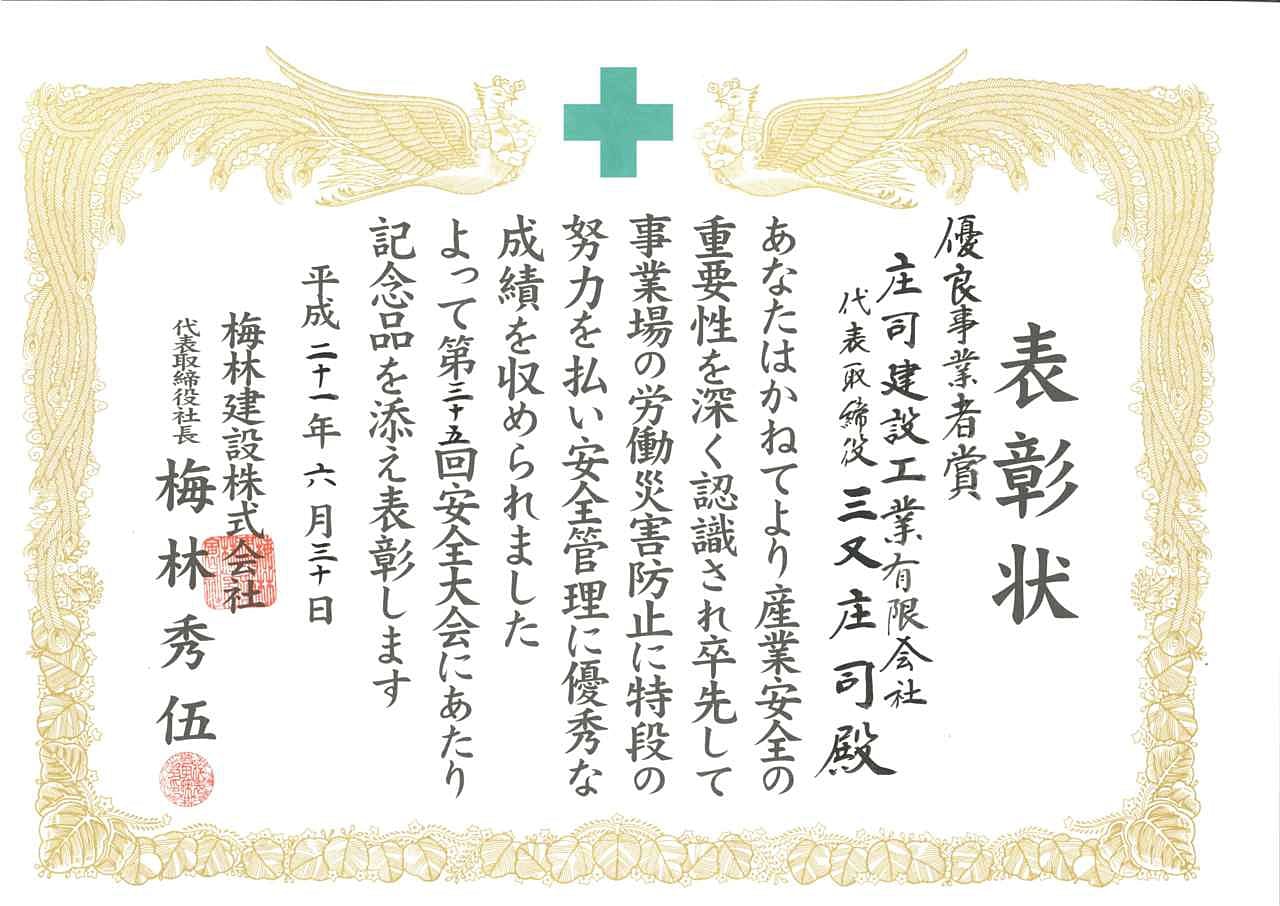 表彰状
優良事業者賞
庄司建設工業有限会社
代表取締役 三又庄司殿
あなたはかねてより産業安全の
重要性を深く認識され卒先して
事業場の労働災害防止に特段の
努力を払い安全管理に優秀な
成績を収められました
よって第三十五回安全大会にあたり
記念品を添え表彰します
平成二十一年六月三十日
梅林建設株式会社
代表取締役社長 梅林秀伍